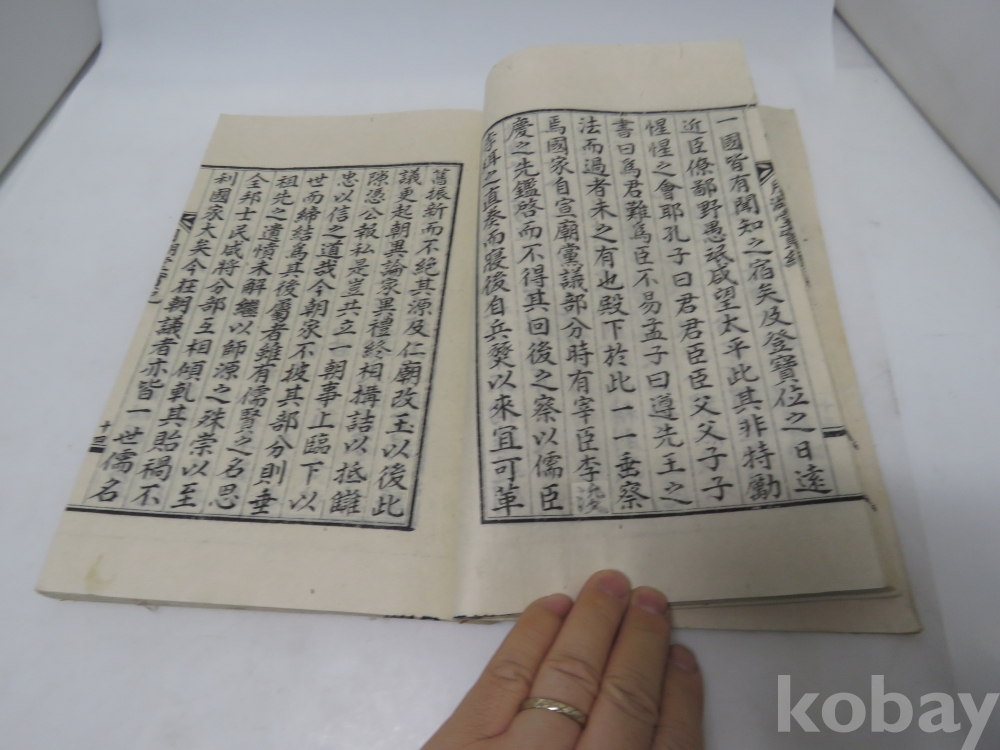 一國皆有聞知之宿矣及登寶位之日遠
近臣僚鄙野愚氓咸望太平此其非特勵
惺惺之會耶孔子曰君君臣臣父父子子
書曰爲君難爲臣不易孟子曰遵先王之
法而過者未之有也殿下於此一一垂察
焉國家自宣廟黨議部分時有宰臣李浚
慶之先鑑啓而不得其回後之察以儒臣
李珥之直奏而寢後自兵燹以來宜可革
舊振新而不絶其源及仁廟改玉以後此
議更起朝異論家異禮終相搆詰以抵讎
隙憑公報私是豈共立一朝事上臨下以
忠以信之道哉今朝家不披其部分則垂
世而締結爲其後屬者雖有儒賢之名思
祖先之遺憤未解繼以師源之殊崇以至
全邦士民咸將分部互相傾軋其貽禍不
利國家大矣今在朝議者亦皆一世儒名
十三
kobay